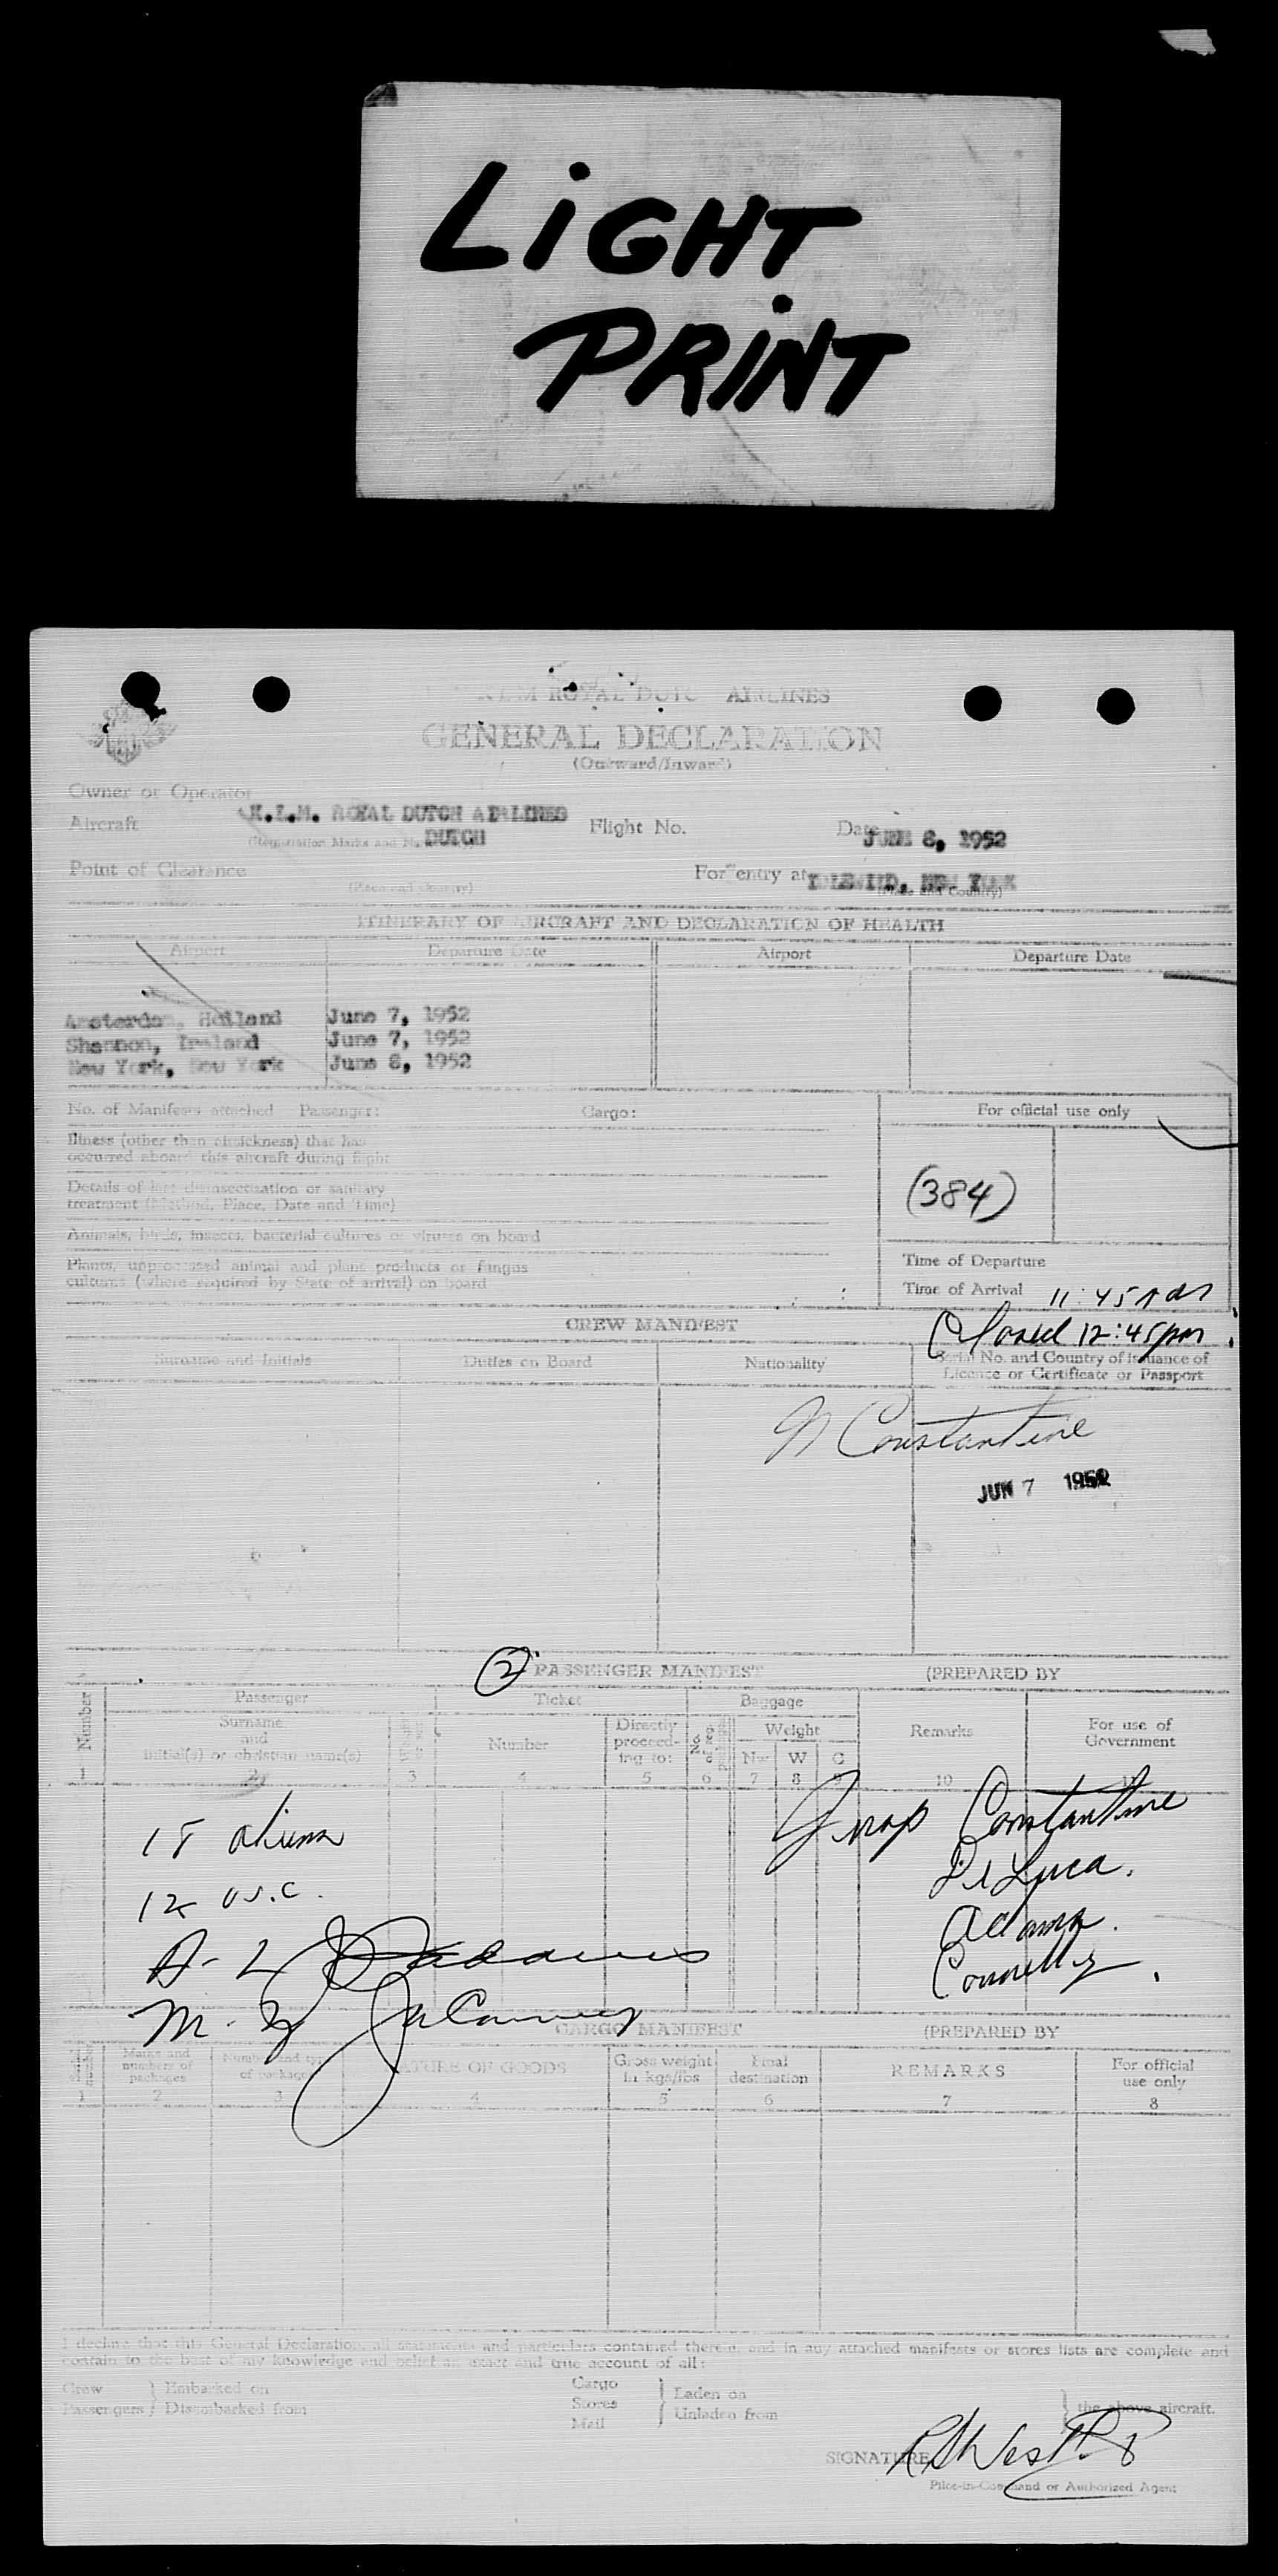 LiGHT
PRiNT
K.L.M ROYAL DUTC AIRLINES
GENERAL DECLARATION
(Outward/Inward)
Owner or Operator
K.L.M. ROYAL DUTCH AIRLINES
Aircraft
(Registration Marks and
DUTCH
Flight No.
Date JUNE 8, 1952
Point of Clearance
(Place and Country)
For entry at IDLEWILD, NEW YORK
(Place and Country)
ITINERARY OF AIRCRAFT AND DECLARATION OF HEALTH
Airport Departure Date Airport Departure Date
Amsterdam, Holland June 7, 1952
Shannon, Ireland June 7, 1952
New York, New York June 8, 1952
No. of Manifests attached Passenger: Cargo: For official use only
Illness (other than airsickness) that has
occurred aboard this aircraft during flight
(384)
Details of last disinsectisation or sanitary
treatment (Method, Place, Date and Time)
Animals, birds, insects, bacterial cultures or viruses on board
Plants, unprocessed animal and plant products or fungus
cultures (where required by State of arrival) on board
Time of Departure
Time of Arrival 11:45
CREW MANIFEST
12:45pm
Surname and Initials Duties on Board Nationality Serial No. and Country of issuance of
Licence or Certificate or Passport
N Constantine
JUN 7 1952
(2) PASSENGER MANIFEST (PREPARED BY
Number Passenger Ticket Baggage Remarks For use of
Government
Surname
and
initial(s) or christian name(s)
Number Directly
proceed-
ing to: Weight
Nw W C
1 2 3 4 5 6 7 8 9 10
Insp Constantine
De Luca.
12 U.S.C.
Adams.
Connelly.
CARGO MANIFEST (PREPARED BY
Marks and
numbers of
packages
Number and type
of package
NATURE OF GOODS
Gross weight
in kgs/lbs
Final
destination
REMARKS
For official
use only
1 2 3 4 5 6 7 8
I declare that this General Declaration, all statements and particulars contained therein, and in any attached manifests or stores lists are complete and
contain to the best of my knowledge and belief an exact and true account of all:
Crew
Passengers
Embarked on
Disembarked from
Cargo
Stores
Mail
Laden on
Unladen from
the above aircraft.
SIGNATURE
Pilot-in-Command or Authorized Agent